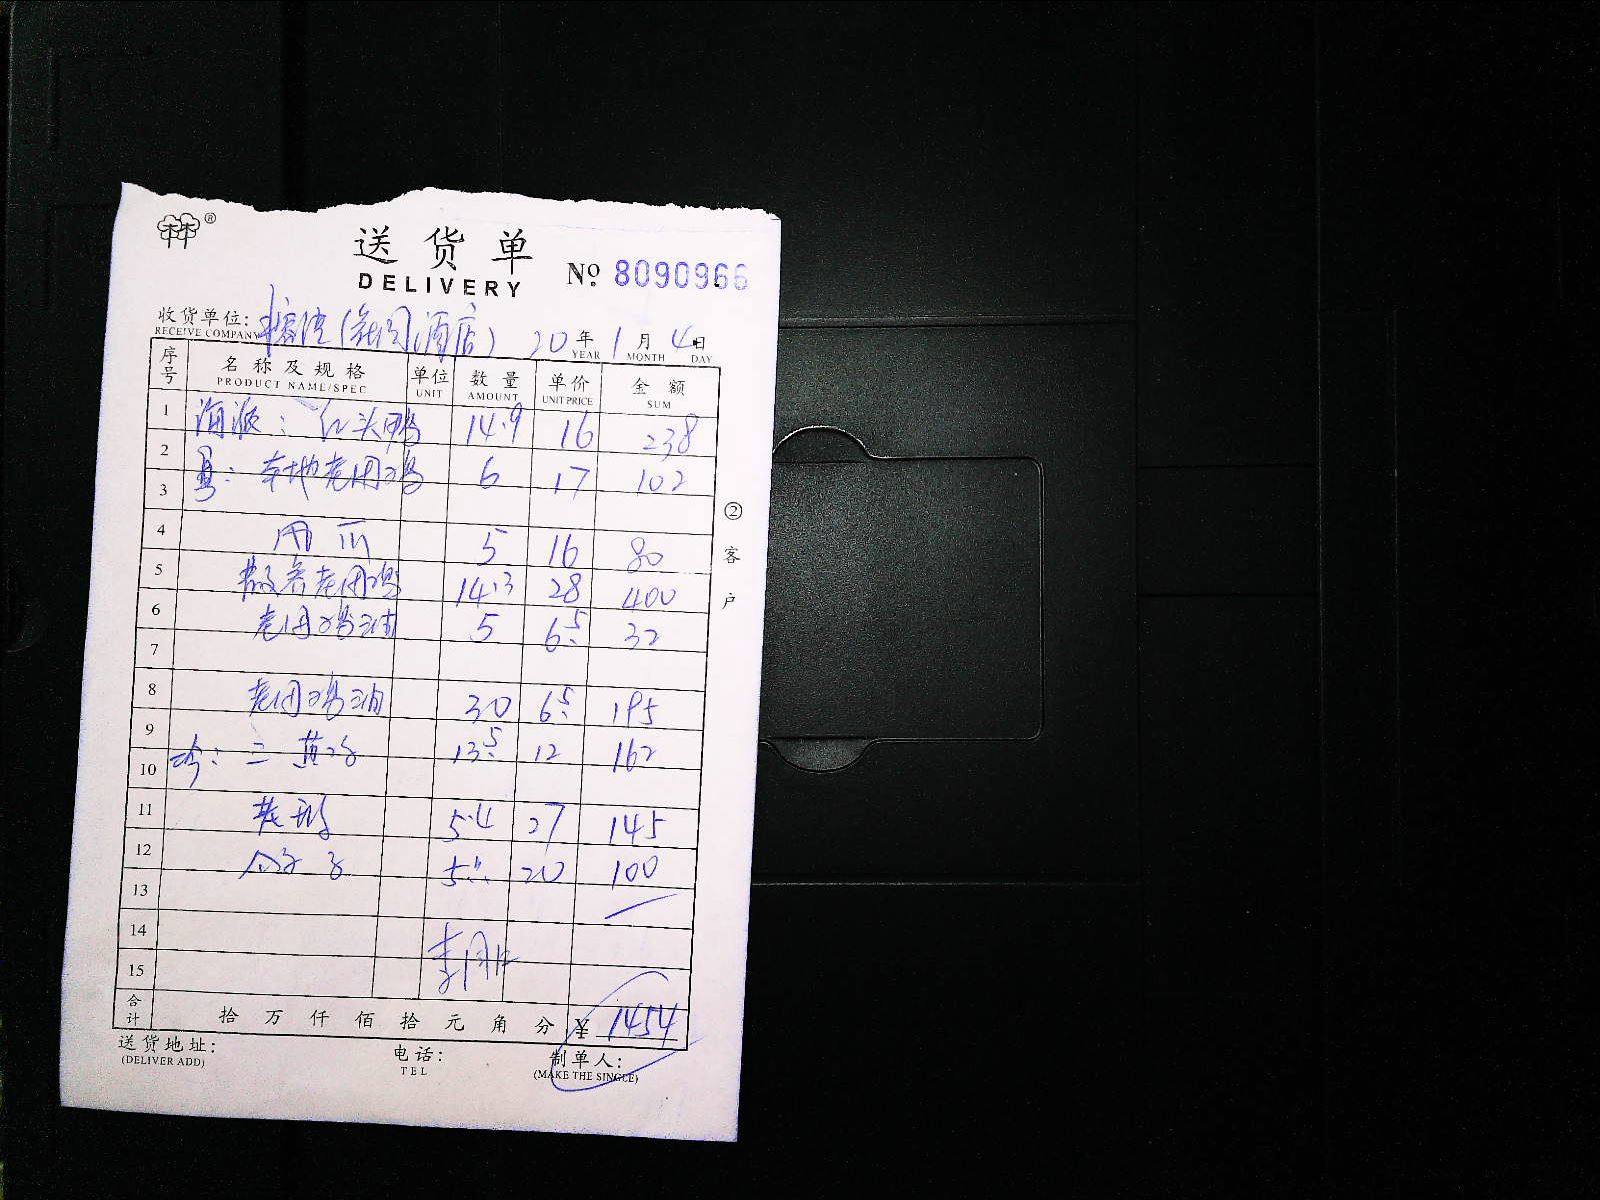 ®
送货单
DELIVERY
№ 8090966
收货单位: (花园酒店) 20年1月4日
RECEIVE COMPANY YEAR MONTH DAY
序号 名称及规格 单位 数量 单价 金额
PRODUCT NAME/SPEC UNIT AMOUNT UNIT PRICE SUM
1 海派: 红头鸭 14.9 16 238
2 粤: 本地老田鸡 6 17 102
3
4 5 16 80
5 散养老田鸡 14.3 28 400
6 老田鸡油 5 6.5 32
7
8 老田鸡油 30 6.5 195
9 三黄鸡 13.5 12 162
10
11 5.4 27 145
12 5 20 100
13
14
15
合计 拾 万 仟 佰 拾 元 角 分 ¥ 1454
送货地址: 电话: 制单人:
(DELIVER ADD) TEL (MAKE THE SINGLE)
②客户